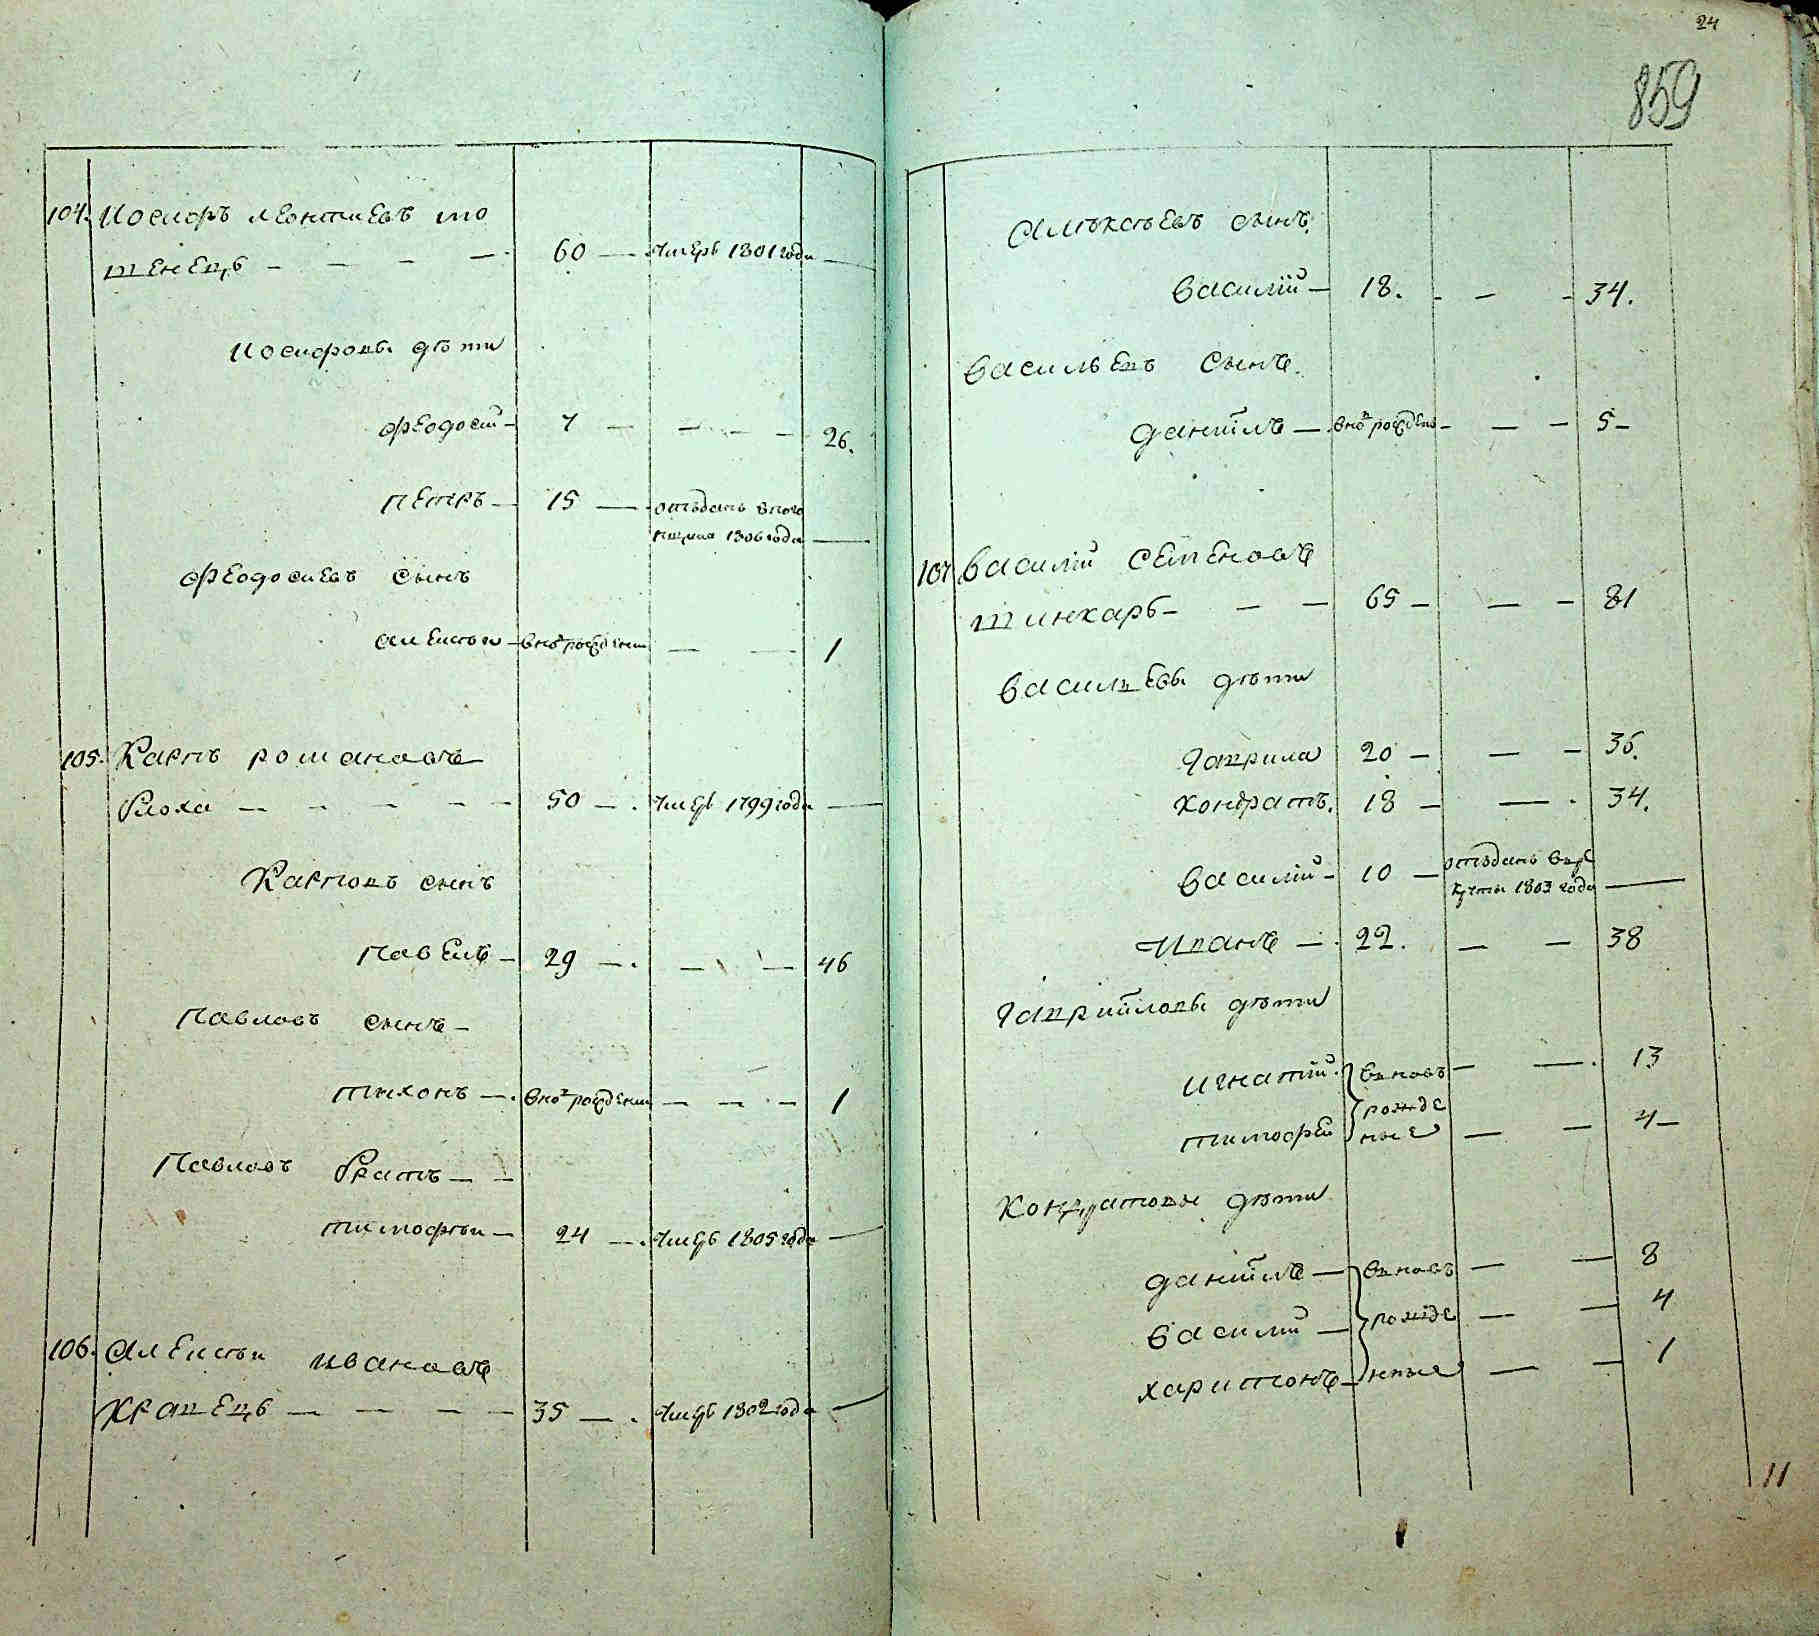 104. Иосифъ леонтиевъ то
тенецъ — — — — 60 — умеръ 1801 года —
Иосифовы дѣти
феодосий — 7 — — — — 26.
петръ — 15 — отъданъ
1806 года —
феодосиевъ сынъ
алексѣй — внов рожденны — — 1
105. Карпъ романовъ
блоха — — — — — 50 — умеръ 1799 года —
Карповъ сынъ
павелъ — 29 — — — 46
павловъ сынъ —
тихонъ — внов рожденны — — — 1
павловъ братъ — —
тимофѣй — 24 — умеръ 1805 года —
106. алексѣй ивановъ
кравецъ — — — — 35 — умеръ 1802 года —
24
859
алѣксѣевъ сынъ
василий — 18. — — — 34.
васильевъ сынъ.
даниилъ — внов рожденъ — — — 5 —
107 василий семеновъ
шинкаръ — — — 65 — — — 81
василиевы дѣти
гаврила 20 — — — 36.
кондратъ. 18 — — 34.
василий — 10 — отъданъ в ре
круты 1803 года —
иванъ — 22. — — 38
гавриловы дѣти
игнатий. вновъ — — 13
рожде
тимофей ные — — 4 —
кондратовы дѣти
даниилъ — вновъ — — 8
василий — рожде — — 4
харитонъ — нные — — 1
11